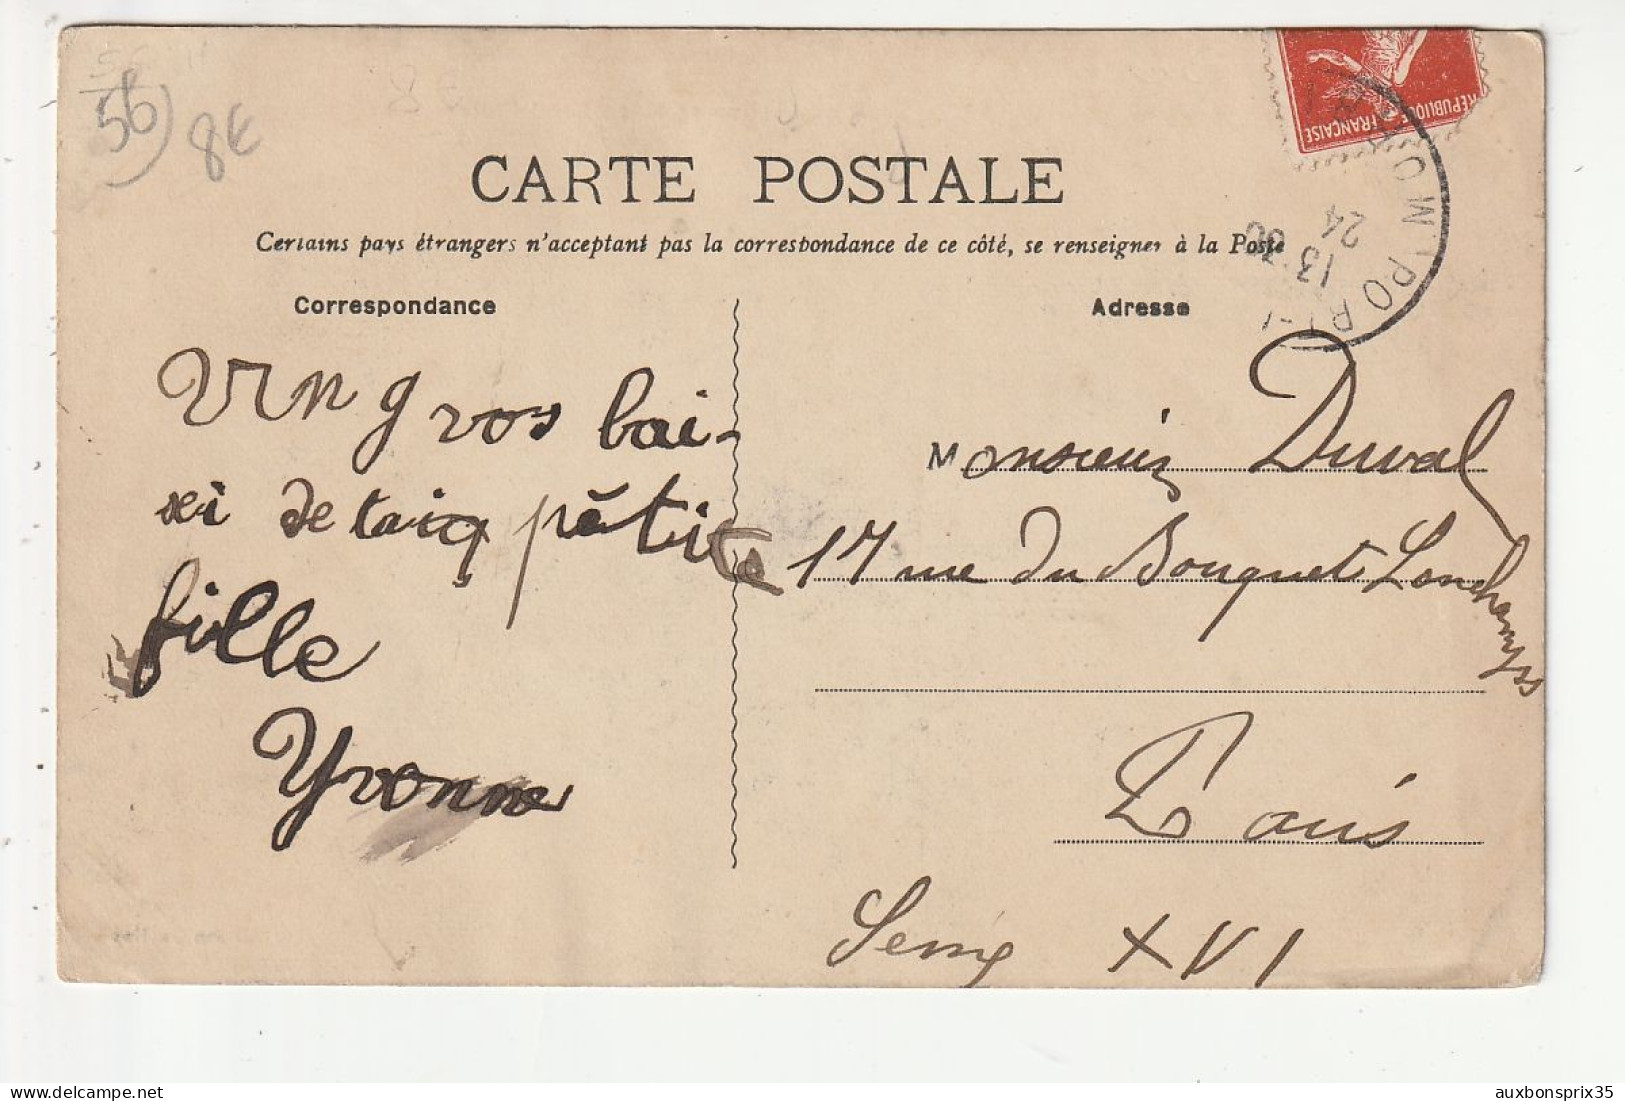 56)
8€
RÉPUBLIQUE FRANÇAISE
13 30
24
CARTE POSTALE
Certains pays étrangers n'acceptent pas la correspondance de ce côté, se renseigner à la Poste
Correspondance
Adresse
un gros bai-
de ta petite
fille
Yvonne
Monsieur Duval
17 rue du Bouquet Lonchamps
Paris
Seine XVI
auxbonsprix35